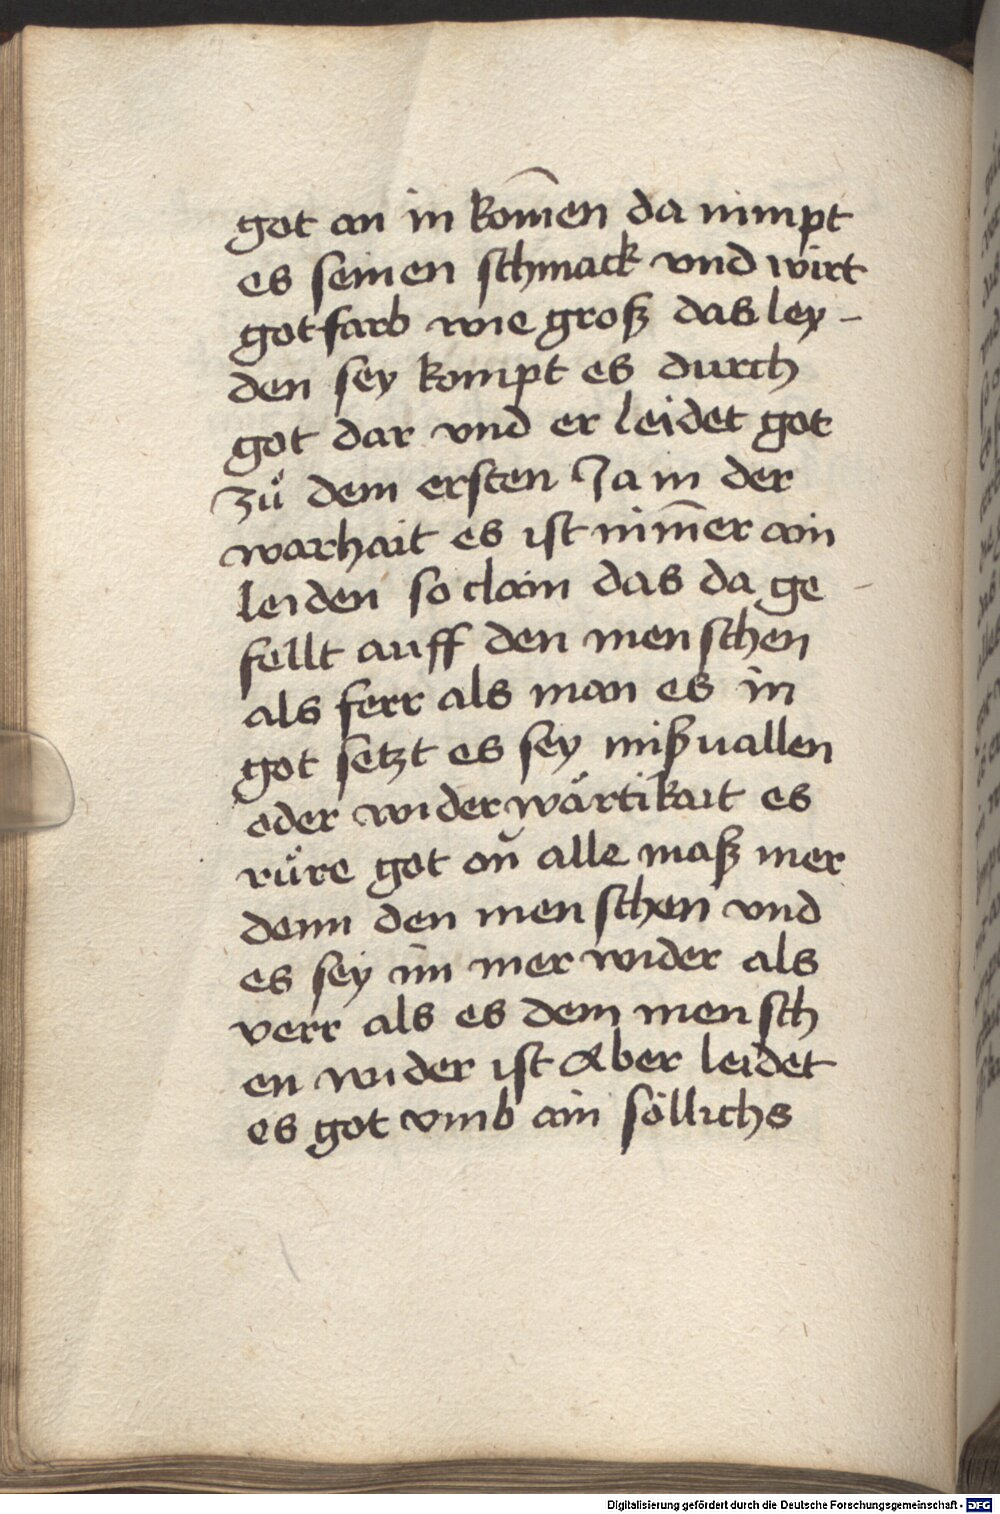 got an in kom̄en da nimpt
es seinen schmack vnd wirt
got farb wie groß das ley-
den sey kompt es durch
got dar vnd er leidet got
zů dem ersten Ja in der
warhait es ist nim̄er ain
leiden so clain das da ge
fellt auff den menschen
als ferr als man es in
got setzt es sey mißuallen
oder widerwärtikait es
rüre got on alle maß mer
denn den menschen vnd
es sey im mer wider als
verr als es dem mensch
en wider ist Aber leidet
es got vmb ain söllichs
Digitalisierung gefördert durch die Deutsche Forschungsgemeinschaft - DFG